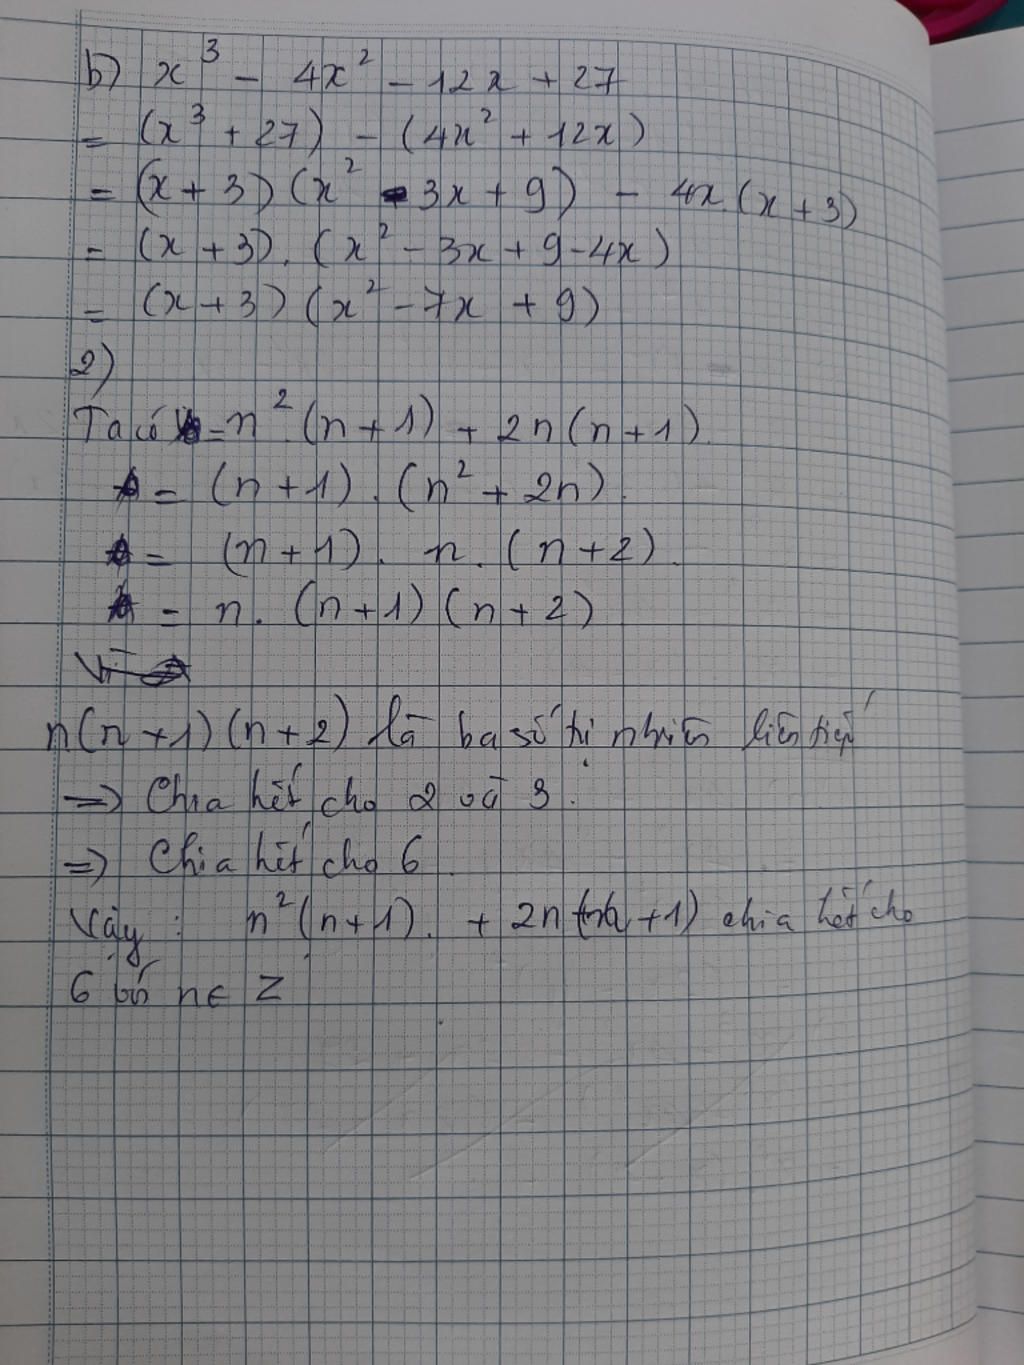 b) x³ - 4x² - 12x + 27
= (x³ + 27) - (4x² + 12x)
= (x + 3) (x² - 3x + 9) - 4x.(x + 3)
= (x + 3). (x² - 3x + 9 - 4x)
= (x + 3) (x² - 7x + 9)
2)
Ta có = n².(n + 1) + 2n(n + 1).
= (n + 1). (n² + 2n).
= (n + 1). n. (n + 2).
= n. (n + 1) (n + 2)
n(n + 1)(n + 2) là ba số tự nhiên liên tiếp
=> Chia hết cho 2 và 3.
=> Chia hết cho 6.
Vậy: n²(n + 1). + 2n (n + 1) chia hết cho
6 n ∈ Z